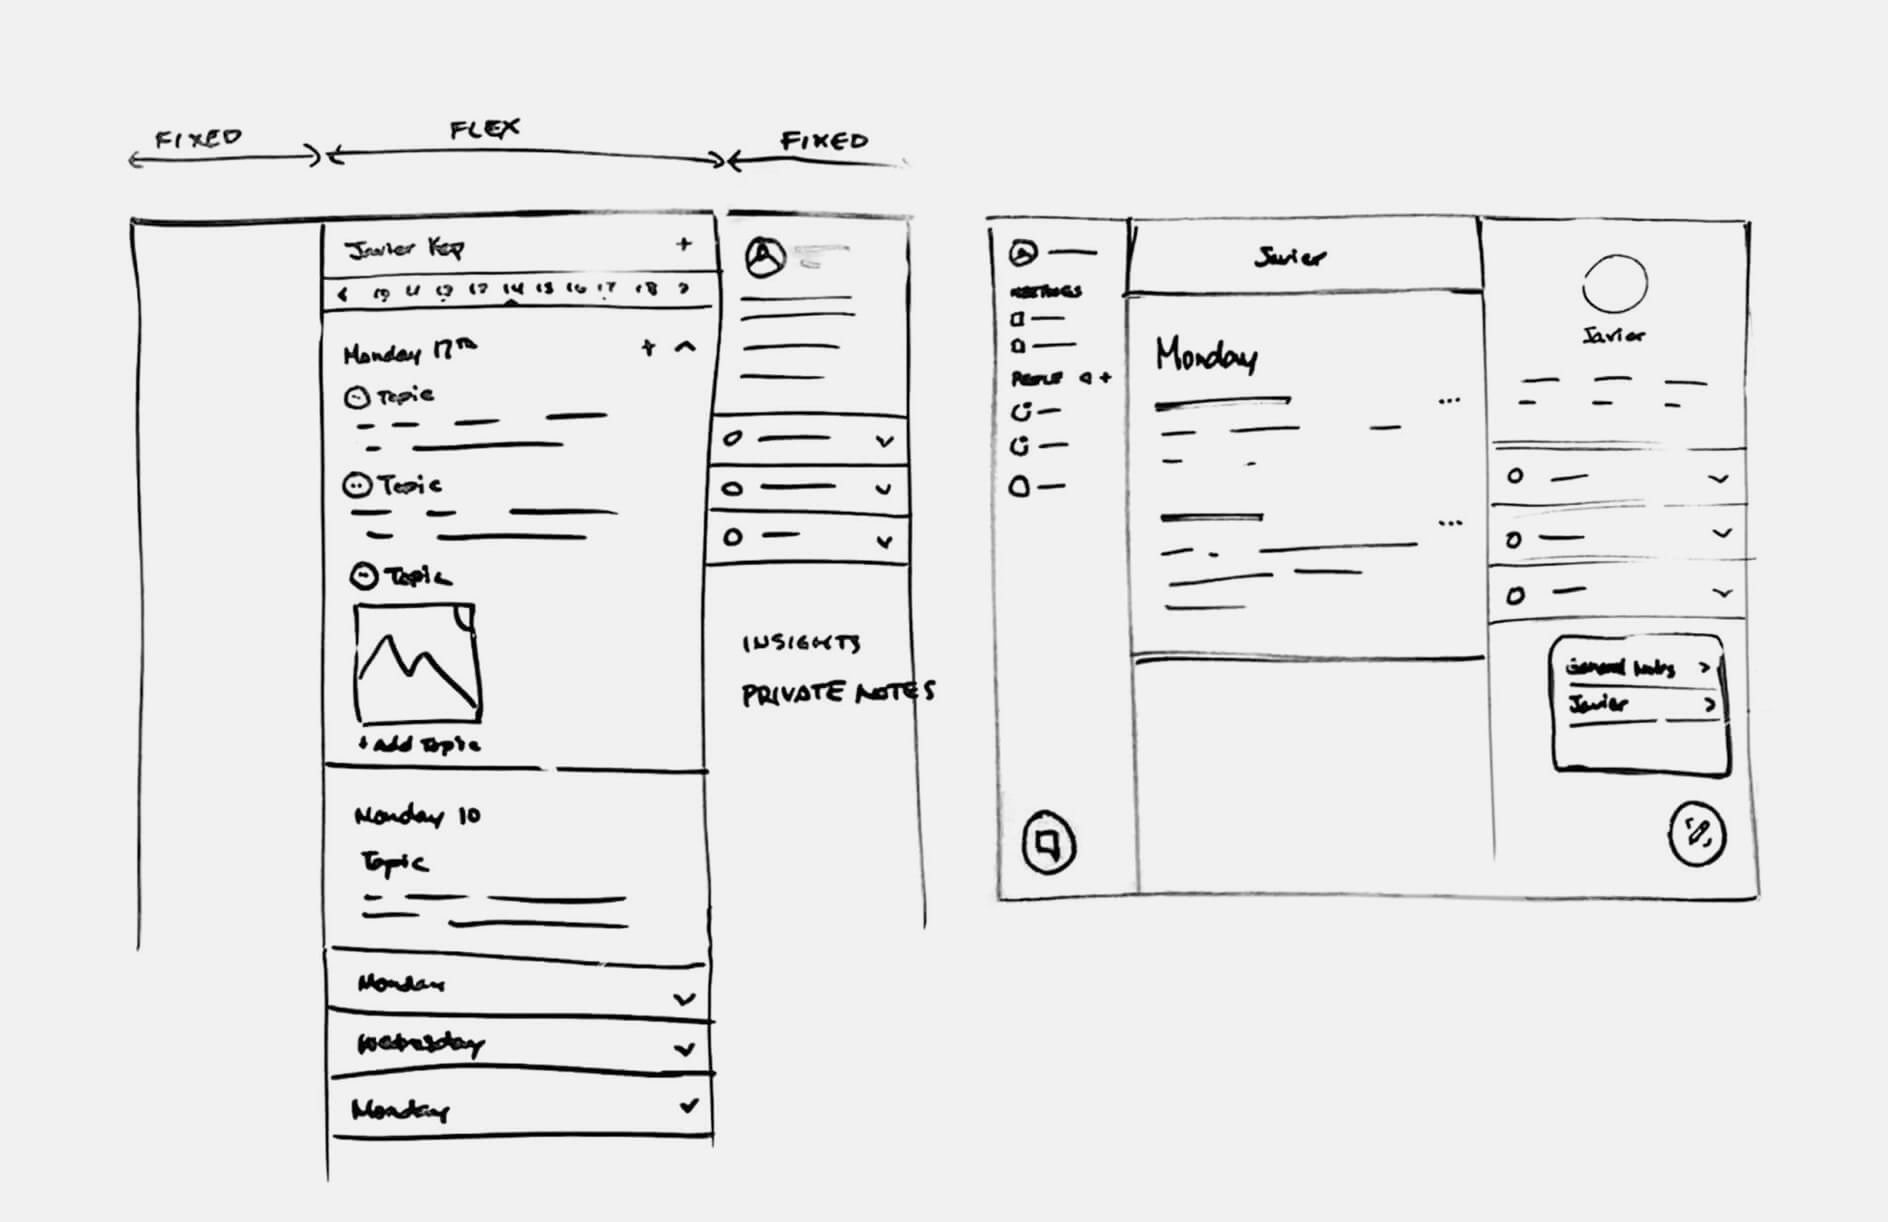 FIXED
FLEX
FIXED
Javier
+
14 15 16 17 18
Monday 17TH
+
Topic
Topic
Topic
+ Add Topic
Monday 10
Topic
Monday
Wednesday
Monday
INSIGHTS
PRIVATE NOTES
MEETINGS
PEOPLE +
Javier
Monday
...
...
Javier
General Notes >
Javier >